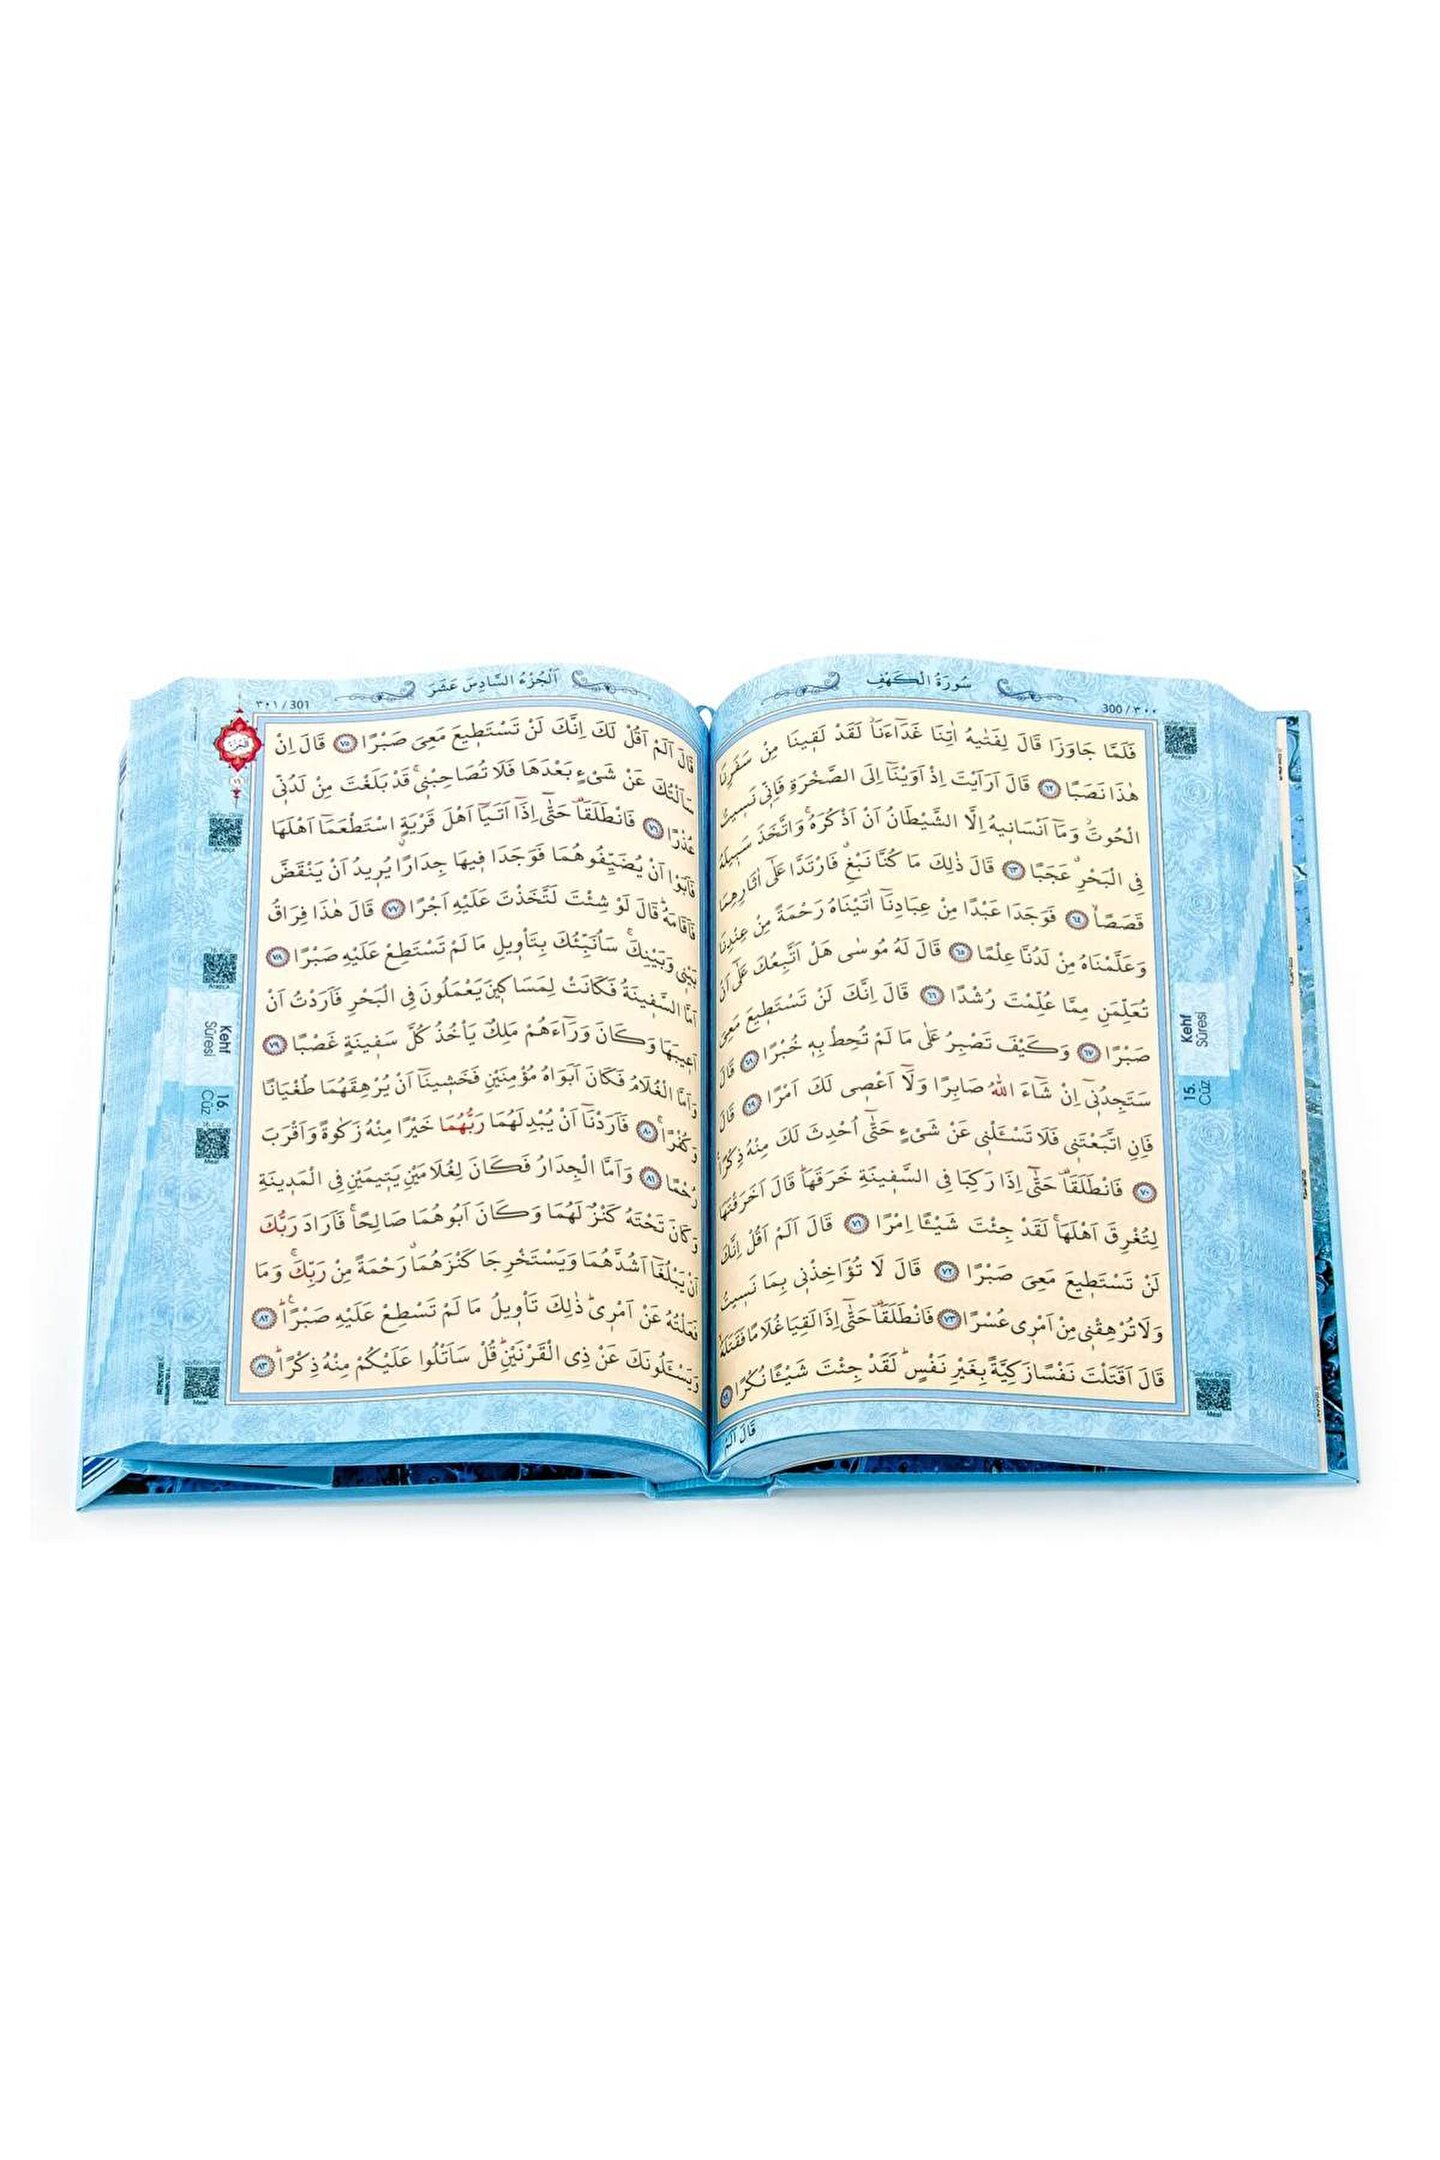 سُورَةُ الْكَهْفِ
300 / ٣٠٠
فَلَمَّا جَاوَزَا قَالَ لِفَتٰيهُ اٰتِنَا غَدَآءَنَاۘ لَقَدْ لَقٖينَا مِنْ سَفَرِنَا
هٰذَا نَصَبًا ﴿٦٢﴾ قَالَ اَرَاَيْتَ اِذْ اَوَيْنَٓا اِلَى الصَّخْرَةِ فَاِنّٖى نَسٖيتُ
الْحُوتَۘ وَمَٓا اَنْسَانٖيهُ اِلَّا الشَّيْطَانُ اَنْ اَذْكُرَهُۚ وَاتَّخَذَ سَبٖيلَهُ
فِى الْبَحْرِۗ عَجَبًا ﴿٦٣﴾ قَالَ ذٰلِكَ مَا كُنَّا نَبْغِۗ فَارْتَدَّا عَلٰٓى اٰثَارِهِمَا
قَصَصًاۙ ﴿٦٤﴾ فَوَجَدَا عَبْدًا مِنْ عِبَادِنَٓا اٰتَيْنَاهُ رَحْمَةً مِنْ عِنْدِنَا
وَعَلَّمْنَاهُ مِنْ لَدُنَّا عِلْمًا ﴿٦٥﴾ قَالَ لَهُ مُوسٰى هَلْ اَتَّبِعُكَ عَلٰٓى اَنْ
تُعَلِّمَنِ مِمَّا عُلِّمْتَ رُشْدًا ﴿٦٦﴾ قَالَ اِنَّكَ لَنْ تَسْتَطٖيعَ مَعِىَ
صَبْرًا ﴿٦٧﴾ وَكَيْفَ تَصْبِرُ عَلٰى مَا لَمْ تُحِطْ بِهٖ خُبْرًا ﴿٦٨﴾ قَالَ
سَتَجِدُنٖٓى اِنْ شَٓاءَ اللّٰهُ صَابِرًا وَلَٓا اَعْصٖى لَكَ اَمْرًا ﴿٦٩﴾ قَالَ
فَاِنِ اتَّبَعْتَنٖى فَلَا تَسْـَٔلْنٖى عَنْ شَىْءٍ حَتّٰٓى اُحْدِثَ لَكَ مِنْهُ ذِكْرًا۟
﴿٧٠﴾ فَانْطَلَقَا۠ حَتّٰٓى اِذَا رَكِبَا فِى السَّفٖينَةِ خَرَقَهَاۜ قَالَ اَخَرَقْتَهَا
لِتُغْرِقَ اَهْلَهَاۚ لَقَدْ جِئْتَ شَيْـًٔا اِمْرًا ﴿٧١﴾ قَالَ اَلَمْ اَقُلْ اِنَّكَ
لَنْ تَسْتَطٖيعَ مَعِىَ صَبْرًا ﴿٧٢﴾ قَالَ لَا تُؤَاخِذْنٖى بِمَا نَسٖيتُ
وَلَا تُرْهِقْنٖى مِنْ اَمْرٖى عُسْرًا ﴿٧٣﴾ فَانْطَلَقَا۠ حَتّٰٓى اِذَا لَقِيَا غُلَامًا فَقَتَلَهُۙ
قَالَ اَقَتَلْتَ نَفْسًا زَكِيَّةً بِغَيْرِ نَفْسٍۜ لَقَدْ جِئْتَ شَيْـًٔا نُكْرًا ﴿٧٤﴾
قَالَ اَلَمْ
Arapça
Kehf
Sûresi
15.
Cüz
Meal
اَلْجُزْءُ السَّادِسَ عَشَرَ
٣٠١ / 301
قَالَ اَلَمْ اَقُلْ لَكَ اِنَّكَ لَنْ تَسْتَطٖيعَ مَعِىَ صَبْرًا ﴿٧٥﴾ قَالَ اِنْ
سَاَلْتُكَ عَنْ شَىْءٍ بَعْدَهَا فَلَا تُصَاحِبْنٖىۚ قَدْ بَلَغْتَ مِنْ لَدُنّٖى
عُذْرًا ﴿٧٦﴾ فَانْطَلَقَا۠ حَتّٰٓى اِذَٓا اَتَيَٓا اَهْلَ قَرْيَةٍۨ اسْتَطْعَمَٓا اَهْلَهَا
فَاَبَوْا اَنْ يُضَيِّفُوهُمَا فَوَجَدَا فٖيهَا جِدَارًا يُرٖيدُ اَنْ يَنْقَضَّ
فَاَقَامَهُۜ قَالَ لَوْ شِئْتَ لَتَّخَذْتَ عَلَيْهِ اَجْرًا ﴿٧٧﴾ قَالَ هٰذَا فِرَاقُ
بَيْنٖى وَبَيْنِكَۚ سَاُنَبِّئُكَ بِتَاْوٖيلِ مَا لَمْ تَسْتَطِعْ عَلَيْهِ صَبْرًا ﴿٧٨﴾
اَمَّا السَّفٖينَةُ فَكَانَتْ لِمَسَاكٖينَ يَعْمَلُونَ فِى الْبَحْرِ فَاَرَدْتُ اَنْ
اَعٖيبَهَا وَكَانَ وَرَٓاءَهُمْ مَلِكٌ يَاْخُذُ كُلَّ سَفٖينَةٍ غَصْبًا ﴿٧٩﴾
وَاَمَّا الْغُلَامُ فَكَانَ اَبَوَاهُ مُؤْمِنَيْنِ فَخَشٖينَٓا اَنْ يُرْهِقَهُمَا طُغْيَانًا
وَكُفْرًاۚ ﴿٨٠﴾ فَاَرَدْنَٓا اَنْ يُبْدِلَهُمَا رَبُّهُمَا خَيْرًا مِنْهُ زَكٰوةً وَاَقْرَبَ
رُحْمًا ﴿٨١﴾ وَاَمَّا الْجِدَارُ فَكَانَ لِغُلَامَيْنِ يَتٖيمَيْنِ فِى الْمَدٖينَةِ
وَكَانَ تَحْتَهُ كَنْزٌ لَهُمَا وَكَانَ اَبُوهُمَا صَالِحًاۚ فَاَرَادَ رَبُّكَ
اَنْ يَبْلُغَٓا اَشُدَّهُمَا وَيَسْتَخْرِجَا كَنْزَهُمَاۗ رَحْمَةً مِنْ رَبِّكَۚ وَمَا
فَعَلْتُهُ عَنْ اَمْرٖىۜ ذٰلِكَ تَاْوٖيلُ مَا لَمْ تَسْطِعْ عَلَيْهِ صَبْرًا۟ۜ ﴿٨٢﴾
وَيَسْـَٔلُونَكَ عَنْ ذِى الْقَرْنَيْنِۜ قُلْ سَاَتْلُوا عَلَيْكُمْ مِنْهُ ذِكْرًاۜ ﴿٨٣﴾
Arapça
Arapça
Kehf
Sûresi
16.
Cüz
Meal
Meal